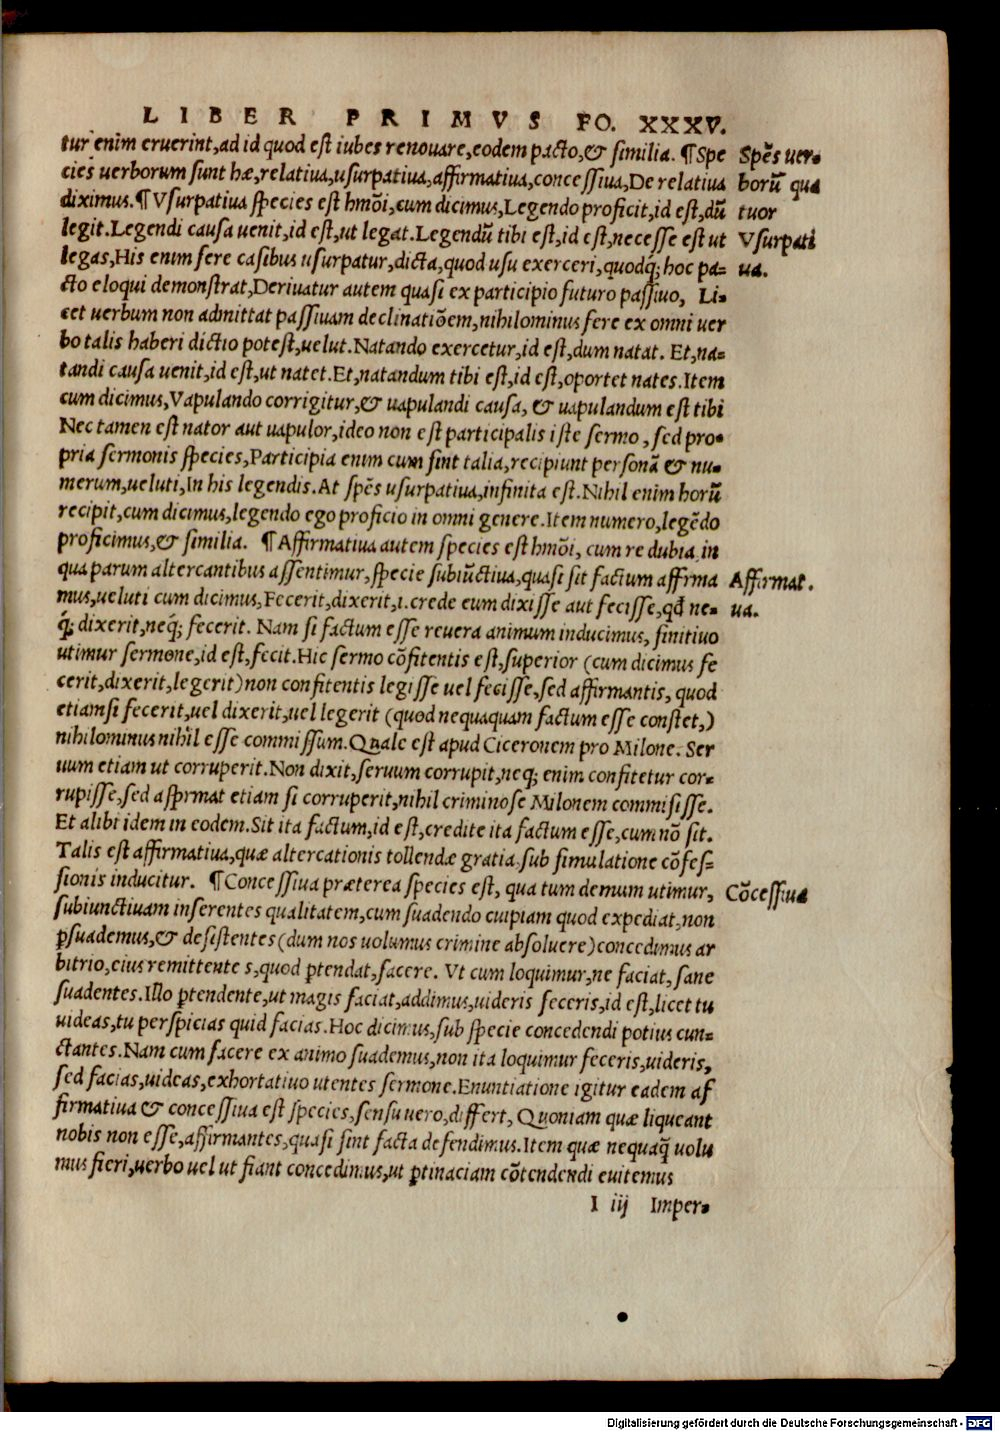 LIBER PRIMVS FO. XXXV.
tur enim eruerint,ad id quod est iubes renouare,eodem pacto,& similia. ¶Spe
cies uerborum sunt hæ,relatiua,usurpatiua,affirmatiua,concessiua,De relatiua
diximus.¶Vsurpatiua species est hmõi,cum dicimus,Legendo proficit,id est,dũ
legit.Legendi causa uenit,id est,ut legat.Legendũ tibi est,id est,necesse est ut
legas,His enim fere casibus usurpatur,dicta,quod usu exerceri,quodq; hoc pa-
cto eloqui demonstrat,Deriuatur autem quasi ex participio futuro passiuo, Li-
cet uerbum non admittat passiuam declinatiõem,nihilominus fere ex omni uer
bo talis haberi dictio potest,uelut.Natando exercetur,id est,dum natat. Et,na-
tandi causa uenit,id est,ut natet.Et,natandum tibi est,id est,oportet nates.Item
cum dicimus,Vapulando corrigitur,& uapulandi causa, & uapulandum est tibi
Nec tamen est nator aut uapulor,ideo non est participalis iste sermo, sed pro-
pria sermonis species,Participia enim cum sint talia,recipiunt personã & nu-
merum,ueluti,In his legendis.At spẽs usurpatiua,infinita est.Nihil enim horũ
recipit,cum dicimus,legendo ego proficio in omni genere.Item numero,legẽdo
proficimus,& similia. ¶Affirmatiua autem species est hmõi, cum re dubia in
qua parum altercantibus assentimur,specie subiũctiua,quasi sit factum affirma
mus,ueluti cum dicimus,Fecerit,dixerit,i.crede eum dixisse aut fecisse,qđ ne-
q; dixerit,neq; fecerit. Nam si factum esse reuera animum inducimus, finitiuo
utimur sermone,id est,fecit.Hic sermo cõfitentis est,superior (cum dicimus fe
cerit,dixerit,legerit)non confitentis legisse uel fecisse,sed affirmantis, quod
etiamsi fecerit,uel dixerit,uel legerit (quod nequaquam factum esse constet,)
nihilominus nihil esse commissum.Quale est apud Ciceronem pro Milone. Ser
uum etiam ut corruperit.Non dixit,seruum corrupit,neq; enim confitetur cor-
rupisse,sed aspṛmat etiam si corruperit,nihil criminose Milonem commisisse.
Et alibi idem in eodem.Sit ita factum,id est,credite ita factum esse,cum nõ sit.
Talis est affirmatiua,quæ altercationis tollendæ gratia sub simulatione cõfes-
sionis inducitur. ¶Concessiua præterea species est, qua tum demum utimur,
subiunctiuam inserentes qualitatem,cum suadendo cuipiam quod expediat,non
ꝑsuademus,& desistentes(dum nos uolumus crimine absoluere)concedimus ar
bitrio,eius remittentes,quod ꝑtendat,facere. Vt cum loquimur,ne faciat, sane
suadentes.Illo ꝑtendente,ut magis faciat,addimus,uideris feceris,id est,licet tu
uideas,tu perspicias quid facias.Hoc dicimus,sub specie concedendi potius cun-
ctantes.Nam cum facere ex animo suademus,non ita loquimur feceris,uideris,
sed facias,uideas,exhortatiuo utentes sermone.Enuntiatione igitur eadem af
firmatiua & concessiua est species,sensu uero,differt, Quoniam quæ liqueant
nobis non esse,affirmantes,quasi sint facta defendimus.Item quæ nequaq̃ uolu
mus fieri,uerbo uel ut fiant concedimus,ut ꝑtinaciam cõtendendi euitemus
I iij Imper-
Spẽs uer-
borũ qua
tuor
Vsurpati
ua.
Affirmat.
ua.
Cõcessiua
Digitalisierung gefördert durch die Deutsche Forschungsgemeinschaft - DFG